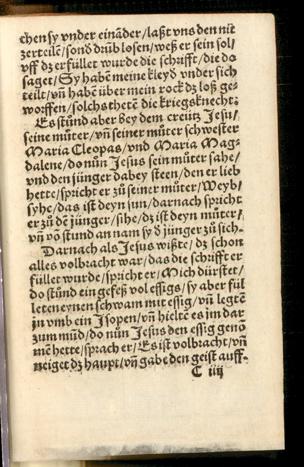 chen sy vnder eināder/ laßt vns den nit
zerteilē/ sond drūb losen/ weß er sein sol/
vff dz erfüllet wurde die schrifft/ die do
saget/ Sy habē meine kleyd vnder sich
teilt/ vn̄ habē über mein rock dz loß ge-
worffen/ solchs thetē die kriegsknecht:
Es stūnd aber bey dem creütz Jesu/
seine mūter/ vn̄ seiner mūter schwester
Maria Cleopas/ vnd Maria Mag-
dalene/ do nūn Jesus sein mūter sahe/
vnd den jünger dabey steen/ den er lieb
hette/ spricht er zū seiner mūter/ Weyb/
syhe/ das ist deyn sun/ darnach spricht
er zū dē jünger/ sihe/ dz ist deyn mūter/
vn̄ vō stund an nam sy d jünger zū sich.
Darnach als Jesus wißte/ dz schon
alles volbracht war/ das die schrifft er
füllet wurde/ spricht er/ Mich dürstet/
do stūnd ein gefeß vol essigs/ sy aber fül
leten eynen schwam mit essig/ vn̄ legtē
jn vmb ein Jsopen/ vn̄ hieltē es im dar
zum mūd/ do nūn Jesus den essig genō
mē hette/ sprach er/ Es ist volbracht/ vn̄
neiget dz haupt/ vn̄ gabe den geist auff.
C iij